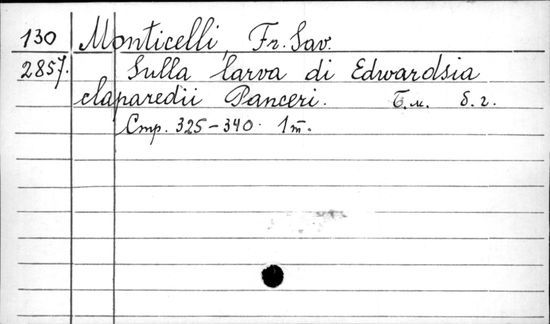 130 Monticelli, Fr. Sav.
2857. Sulla larva di Edwardsia
claparedii Panceri. Б.м. б.г.
Стр. 325-340. 1 т.